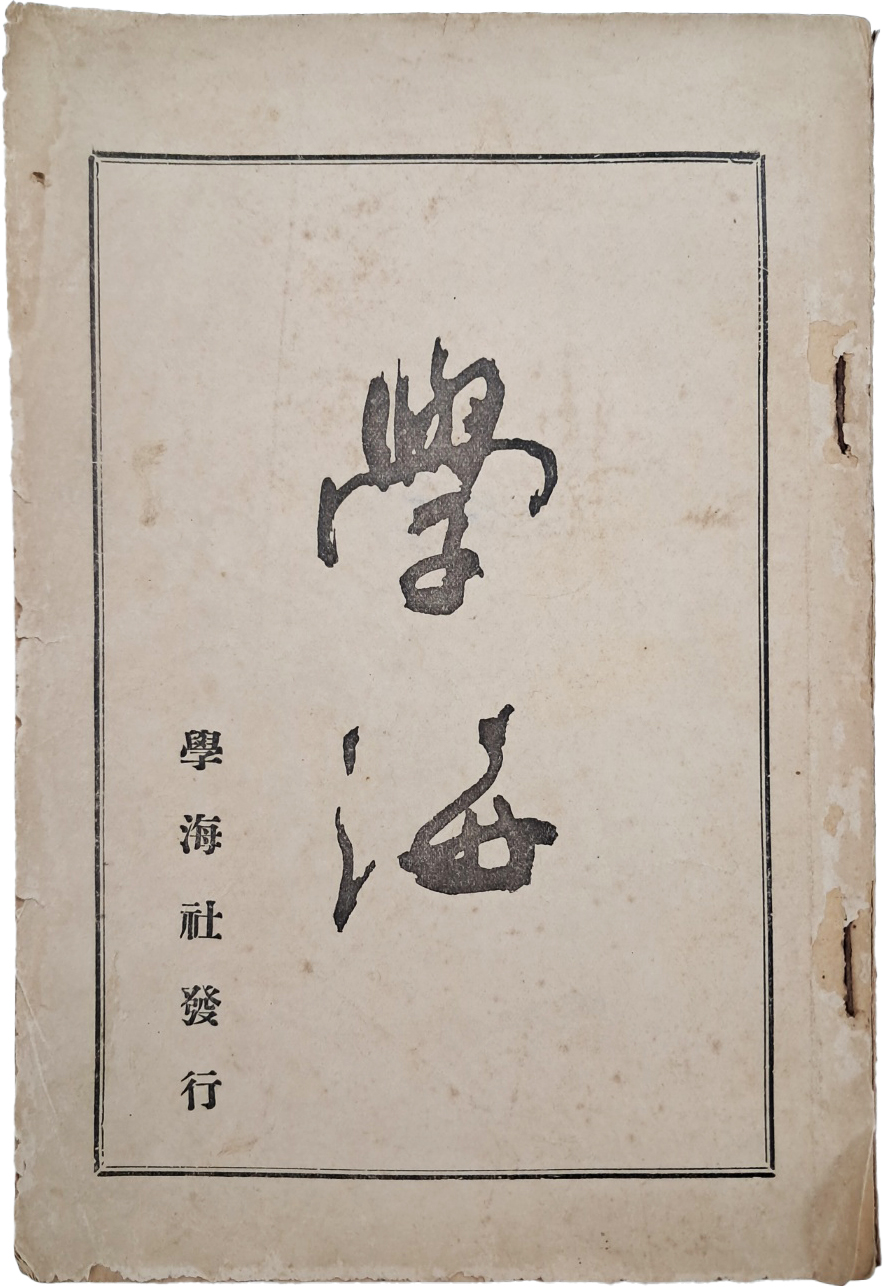 學海
學海社發行